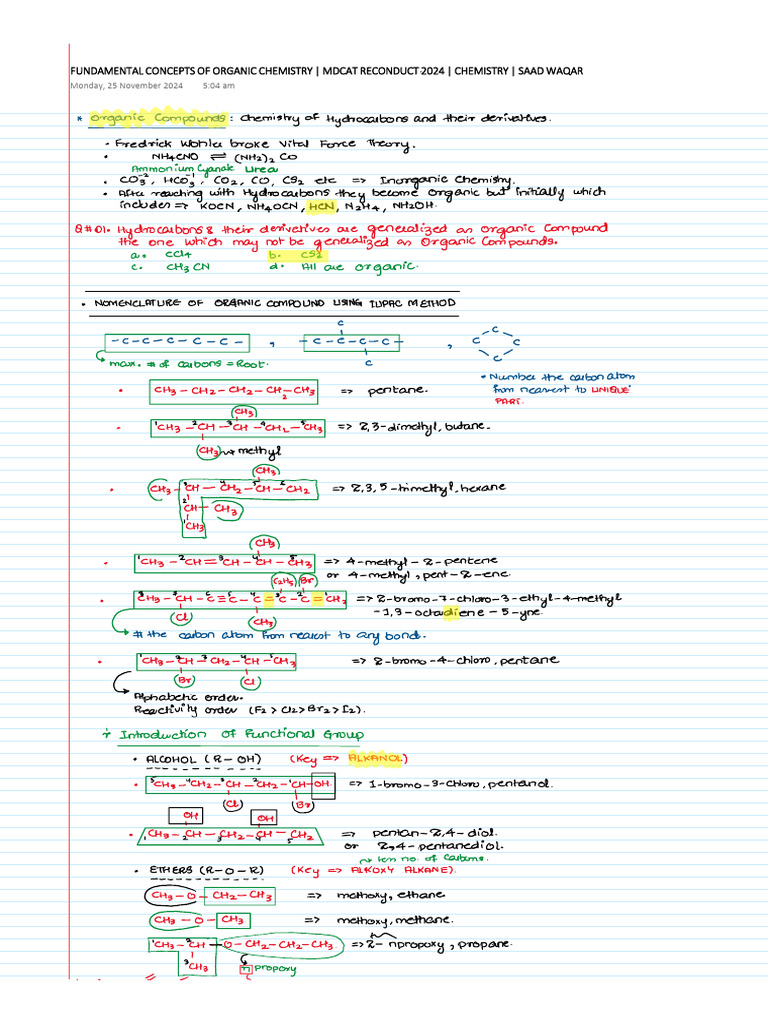 FUNDAMENTAL CONCEPTS OF ORGANIC CHEMISTRY | MDCAT RECONDUCT 2024 | CHEMISTRY | SAAD WAQAR
Monday, 25 November 2024 5:04 am
* Organic Compounds: Chemistry of Hydrocarbons and their derivatives.
• Fredrick Wohler broke Vital Force Theory.
• NH4CNO ⇌ (NH2)2 CO
Ammonium Cyanate Urea
• CO3-2, HCO3-1, CO2, CO, CS2 etc => Inorganic Chemistry.
• After reacting with Hydrocarbons they become organic but initially which
includes => KOCN, NH4OCN, HCN, N2H4, NH2OH.
Q#01. Hydrocarbons & their derivatives are generalized as organic compound
the one which may not be generalized as Organic Compounds.
a. CCl4 b. CS2
c. CH3CN d. All are organic.
• NOMENCLATURE OF ORGANIC COMPOUND USING IUPAC METHOD
C
-C-C-C-C-C-C- , -C-C-C-C- , C C C C C
C
max. # of carbons = Root.
• Number the carbon atom
from nearest to UNIQUE
PART.
• CH3-CH2-CH2-CH2-CH3 => pentane.
CH3
• 1CH3-2CH-3CH-4CH2-5CH3 => 2,3-dimethyl, butane.
CH3 methyl
CH3
• CH3-3CH-4CH2-5CH-6CH2 => 2,3,5-trimethyl, hexane
2CH-CH3
1CH3
CH3
• 1CH3-2CH=3CH-4CH-5CH3 => 4-methyl-2-pentene
or 4-methyl, pent-2-ene.
C2H5 Br
• 8CH3-7CH-6C≡5C-4C=3C-2C=1CH2 => 2-bromo-7-chloro-3-ethyl-4-methyl
-1,3-octadiene-5-yne.
Cl CH3
# the carbon atom from nearest to any bond.
• 1CH3-2CH-3CH2-4CH-5CH3 => 2-bromo-4-chloro, pentane
Br Cl
Alphabetic order.
Reactivity order (F2>Cl2>Br2>I2).
Introduction of Functional Group
• ALCOHOL (R-OH) (Key => ALKANOL)
• 5CH3-4CH2-3CH-2CH2-1CH-OH => 1-bromo-3-chloro, pentanol.
Cl Br
OH OH
• 1CH3-2CH-3CH2-4CH-5CH2 => pentan-2,4-diol.
or 2,4-pentanediol.
no. of carbons.
• ETHERS (R-O-R) (Key => ALKOXY ALKANE).
CH3-O-CH2-CH3 => methoxy, ethane
CH3-O-CH3 => methoxy, methane.
1CH3-2CH-O-CH2-CH2-CH3 => 2-npropoxy, propane.
3CH3 n propoxy